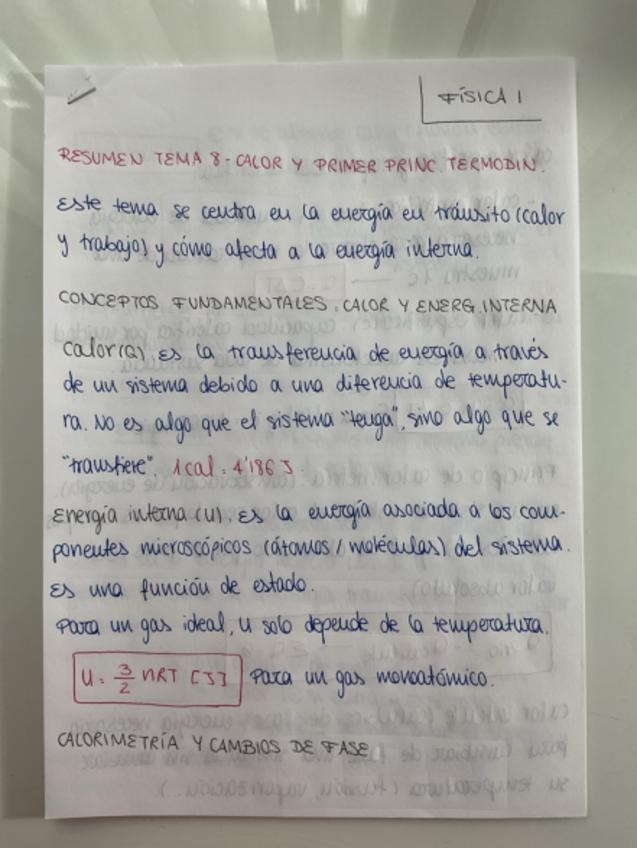 FÍSICA 1
RESUMEN TEMA 8 - CALOR Y PRIMER PRINC. TERMODIN.
Este tema se centra en la energía en tránsito (calor
y trabajo) y cómo afecta a la energía interna.
CONCEPTOS FUNDAMENTALES. CALOR Y ENERG. INTERNA
Calor(Q). Es la transferencia de energía a través
de un sistema debido a una diferencia de temperatu-
ra. No es algo que el sistema "tenga", sino algo que se
"transfiere". 1cal = 4'186 J.
Energía interna (U). Es la energía asociada a los com-
ponentes microscópicos (átomos / moléculas) del sistema.
Es una función de estado.
Para un gas ideal, U solo depende de la temperatura.
U = 3/2 nRT [J] Para un gas monoatómico.
CALORIMETRÍA Y CAMBIOS DE FASE